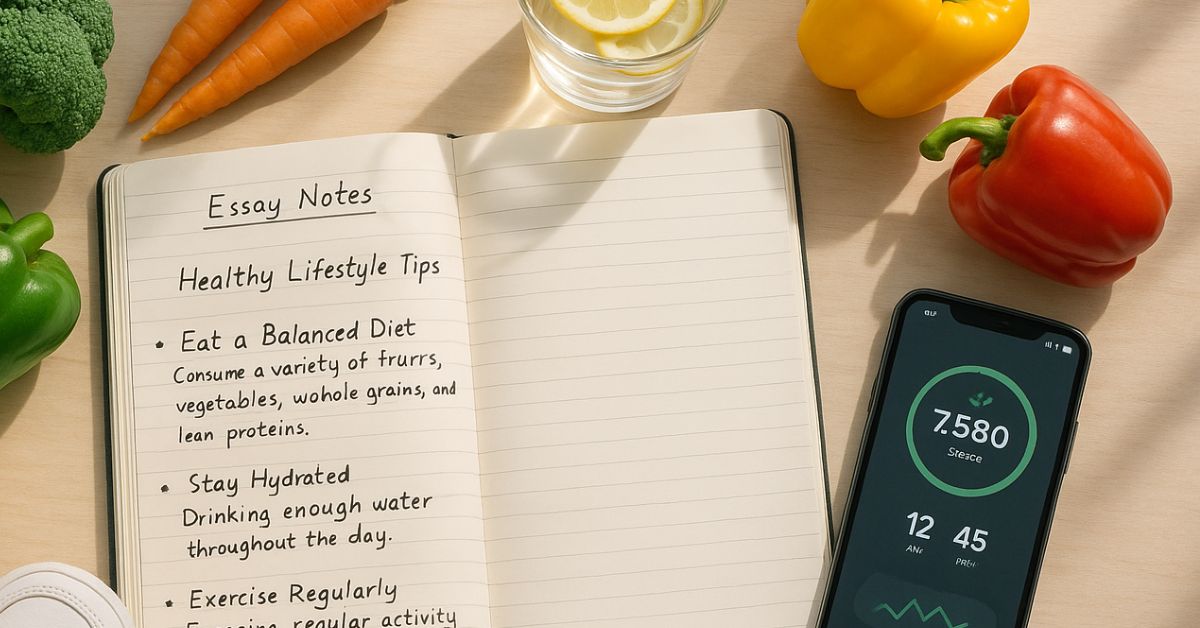 Essay Notes
Healthy Lifestyle Tips
• Eat a Balanced Diet
Consume a variety of frurrs,
vegetables, wohole grains, and
lean proteins.
• Stay Hydrated
Drinking enough water
throughout the day.
• Exercise Regularly
regular activity
7.580
12 45